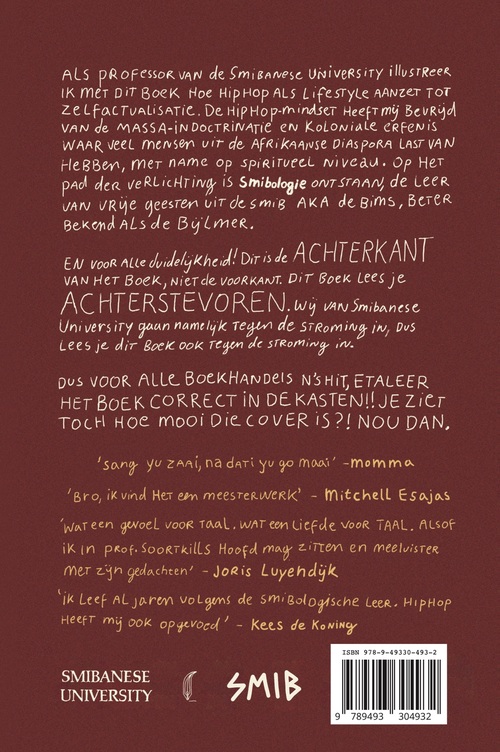 Als professor van de Smibanese University illustreer
ik met dit boek hoe hiphop als lifestyle aanzet tot
zelfactualisatie. De hiphop-mindset heeft mij bevrijd
van de massa-indoctrinatie en koloniale erfenis
waar veel mensen uit de Afrikaanse diaspora last van
hebben, met name op spiritueel niveau. Op het
pad der verlichting is Smibologie ontstaan, de leer
van vrije geesten uit de Smib AKA de Bims, beter
bekend als de Bijlmer.
En voor alle duidelijkheid! Dit is de ACHTERKANT
van het boek, niet de voorkant. Dit boek lees je
ACHTERSTEVOREN. Wij van Smibanese
University gaan namelijk tegen de stroming in, dus
lees je dit boek ook tegen de stroming in.
Dus voor alle boekhandels n'shit, etaleer
het boek correct in de kasten!! Je ziet
toch hoe mooi die cover is?! Nou dan.
'Sang yu zaai, na dati yu go maai' - momma
'Bro, ik vind het een meesterwerk' - Mitchell Esajas
'Wat een gevoel voor taal. Wat een liefde voor taal. Alsof
ik in prof. Soortkills hoofd mag zitten en meeluister
met zijn gedachten' - Joris Luyendijk
'Ik leef al jaren volgens de smibologische leer. Hiphop
heeft mij ook opgevoed' - Kees de Koning
ISBN 978-9-49330-493-2
SMIBANESE
UNIVERSITY
SMIB
9 789493 304932